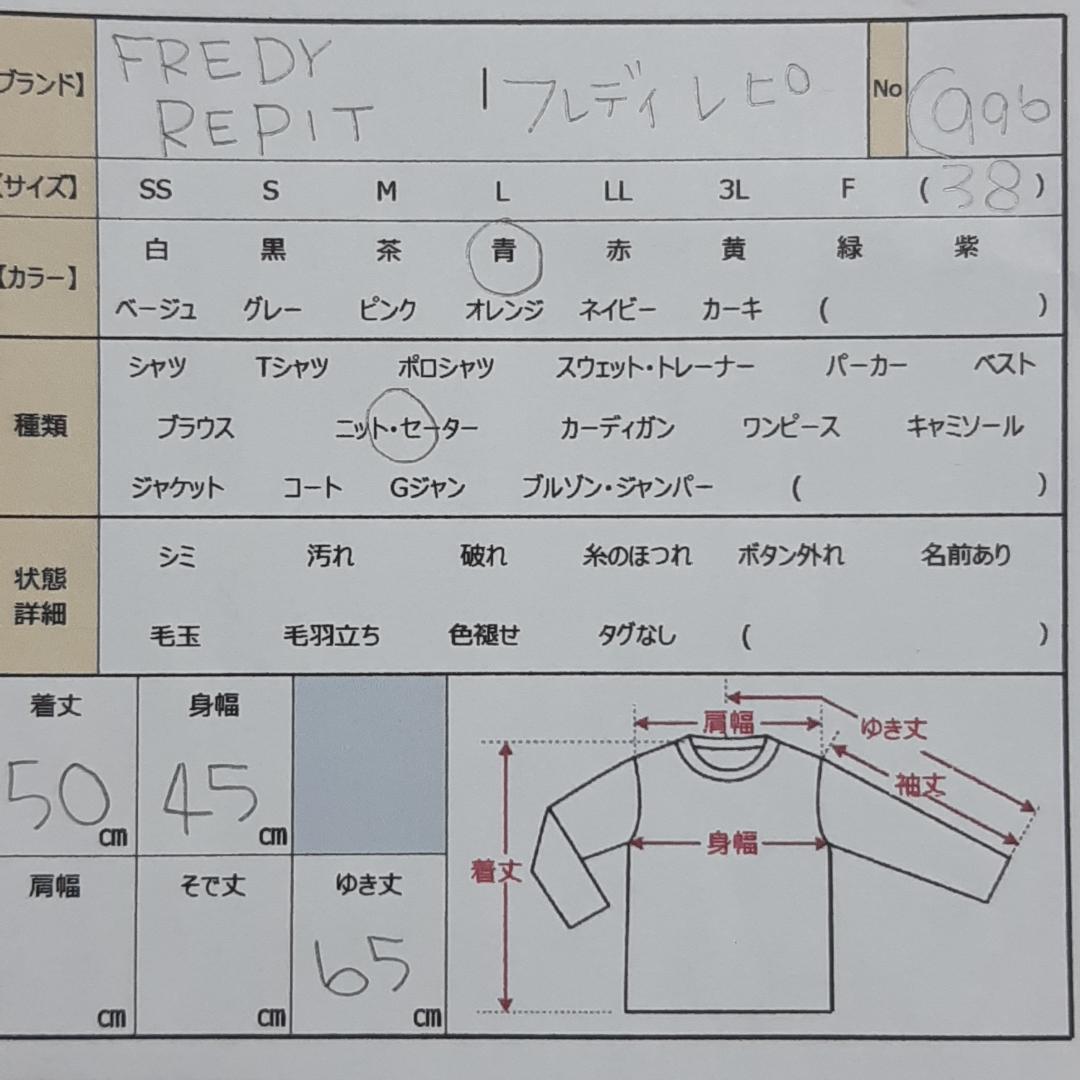 ブランド】 FREDY REPIT フレディ レピ No 996
【サイズ】 SS S M L LL 3L F (38)
白 黒 茶 青 赤 黄 緑 紫
【カラー】
ベージュ グレー ピンク オレンジ ネイビー カーキ ( )
シャツ Tシャツ ポロシャツ スウェット・トレーナー パーカー ベスト
種類 ブラウス ニット・セーター カーディガン ワンピース キャミソール
ジャケット コート Gジャン ブルゾン・ジャンパー ( )
シミ 汚れ 破れ 糸のほつれ ボタン外れ 名前あり
状態
詳細
毛玉 毛羽立ち 色褪せ タグなし ( )
着丈 身幅
50cm 45cm
肩幅 そで丈 ゆき丈
cm cm 65cm
肩幅 ゆき丈
袖丈
身幅
着丈